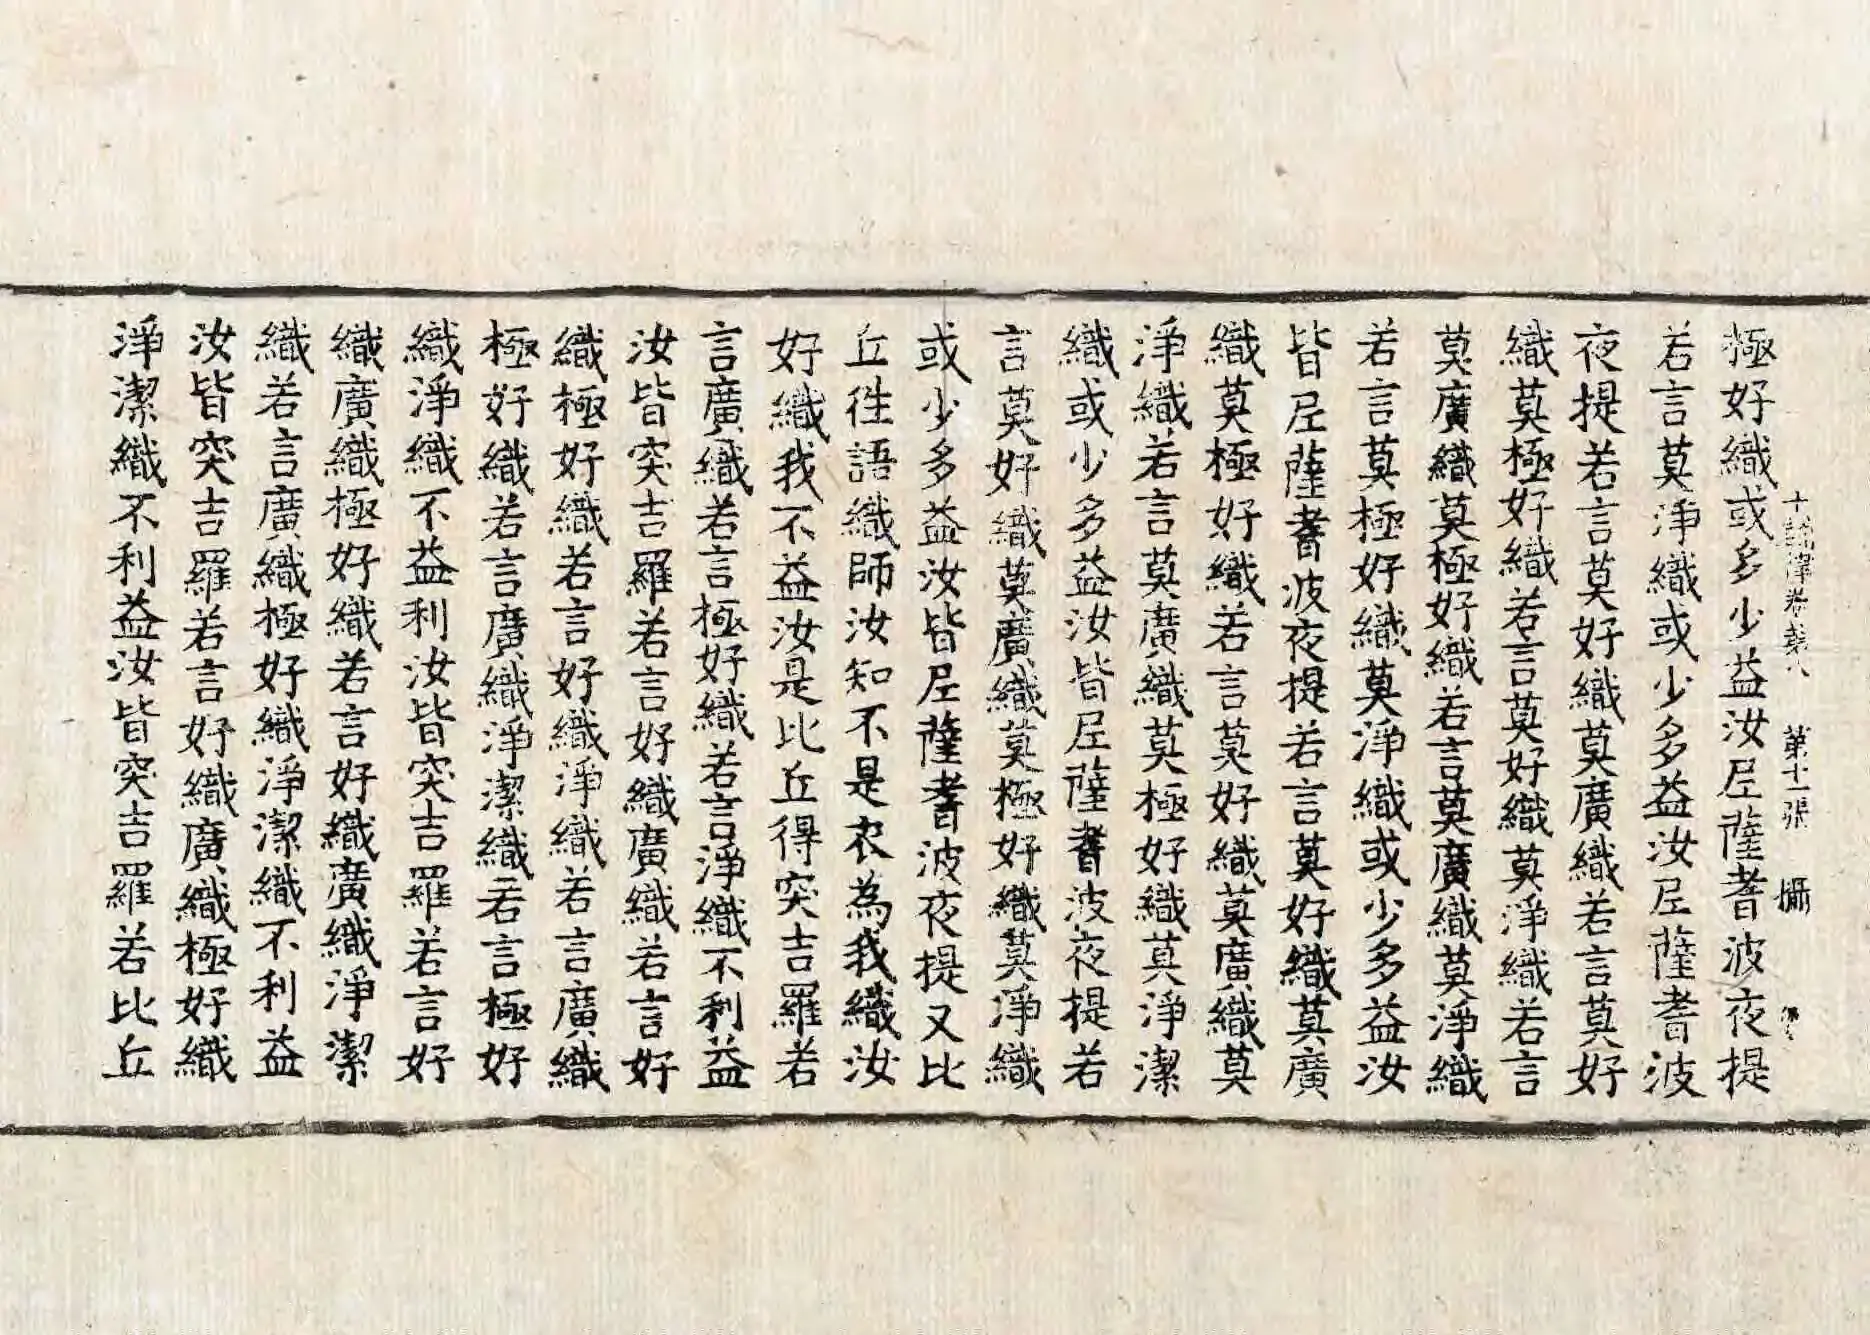 十誦律卷第八 第十一張 攝
極好織或多少益汝尼薩耆波夜提
若言莫淨織或少多益汝尼薩耆波
夜提若言莫好織莫廣織若言莫好
織莫極好織若言莫好織莫淨織若言
莫廣織莫極好織若言莫廣織莫淨織
若言莫極好織莫淨織或少多益汝
皆尼薩耆波夜提若言莫好織莫廣
織莫極好織若言莫好織莫廣織莫
淨織若言莫廣織莫極好織莫淨潔
織或少多益汝皆尼薩耆波夜提若
言莫好織莫廣織莫極好織莫淨織
或少多益汝皆尼薩耆波夜提又比
丘往語織師汝知不是衣為我織汝
好織我不益汝是比丘得突吉羅若
言廣織若言極好織若言淨織不利益
汝皆突吉羅若言好織廣織若言好
織極好織若言好織淨織若言廣織
極好織若言廣織淨潔織若言極好
織淨織不益利汝皆突吉羅若言好
織廣織極好織若言好織廣織淨潔
織若言廣織極好織淨潔織不利益
汝皆突吉羅若言好織廣織極好織
淨潔織不利益汝皆突吉羅若比丘